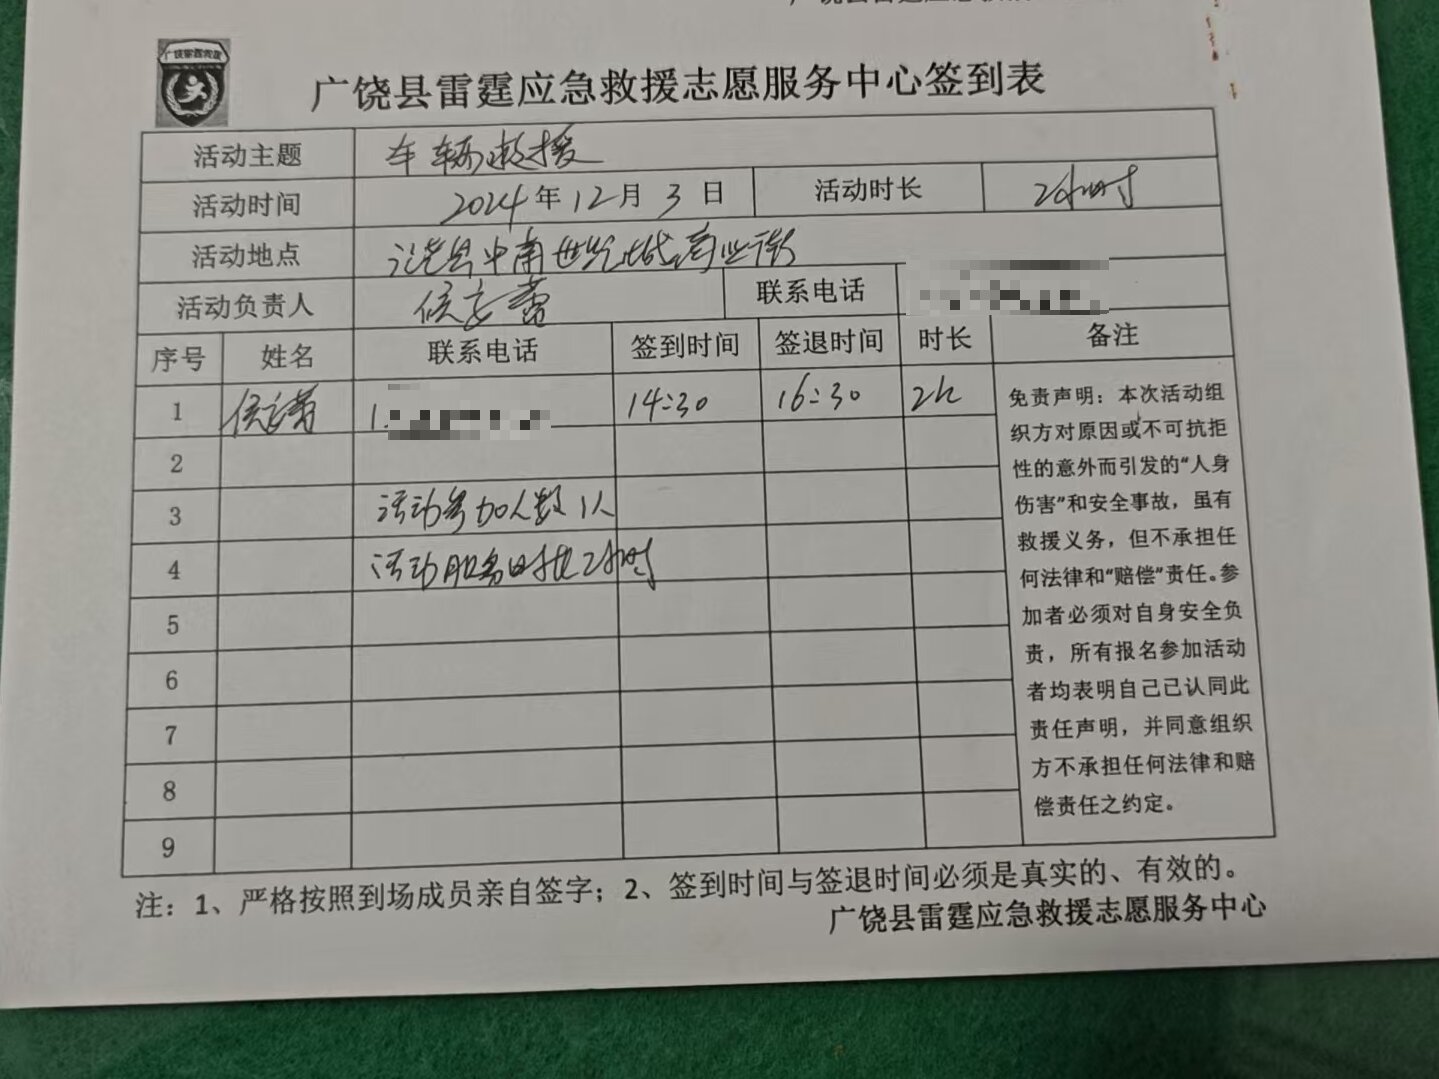 广饶县雷霆应急救援志愿服务中心签到表
活动主题 车辆救援
活动时间 2024年12月3日 活动时长 2小时
活动地点 中南世纪城商业街
活动负责人 侯 联系电话
序号 姓名 联系电话 签到时间 签退时间 时长 备注
1 侯 1 14:30 16:30 2h
2
3 活动参加人数1人
4 活动服务时长2小时
5
6
7
8
9
免责声明：本次活动组
织方对原因或不可抗拒
性的意外而引发的“人身
伤害”和安全事故，虽有
救援义务，但不承担任
何法律和“赔偿”责任。参
加者必须对自身安全负
责，所有报名参加活动
者均表明自己已认同此
责任声明，并同意组织
方不承担任何法律和赔
偿责任之约定。
注：1、严格按照到场成员亲自签字；2、签到时间与签退时间必须是真实的、有效的。
广饶县雷霆应急救援志愿服务中心